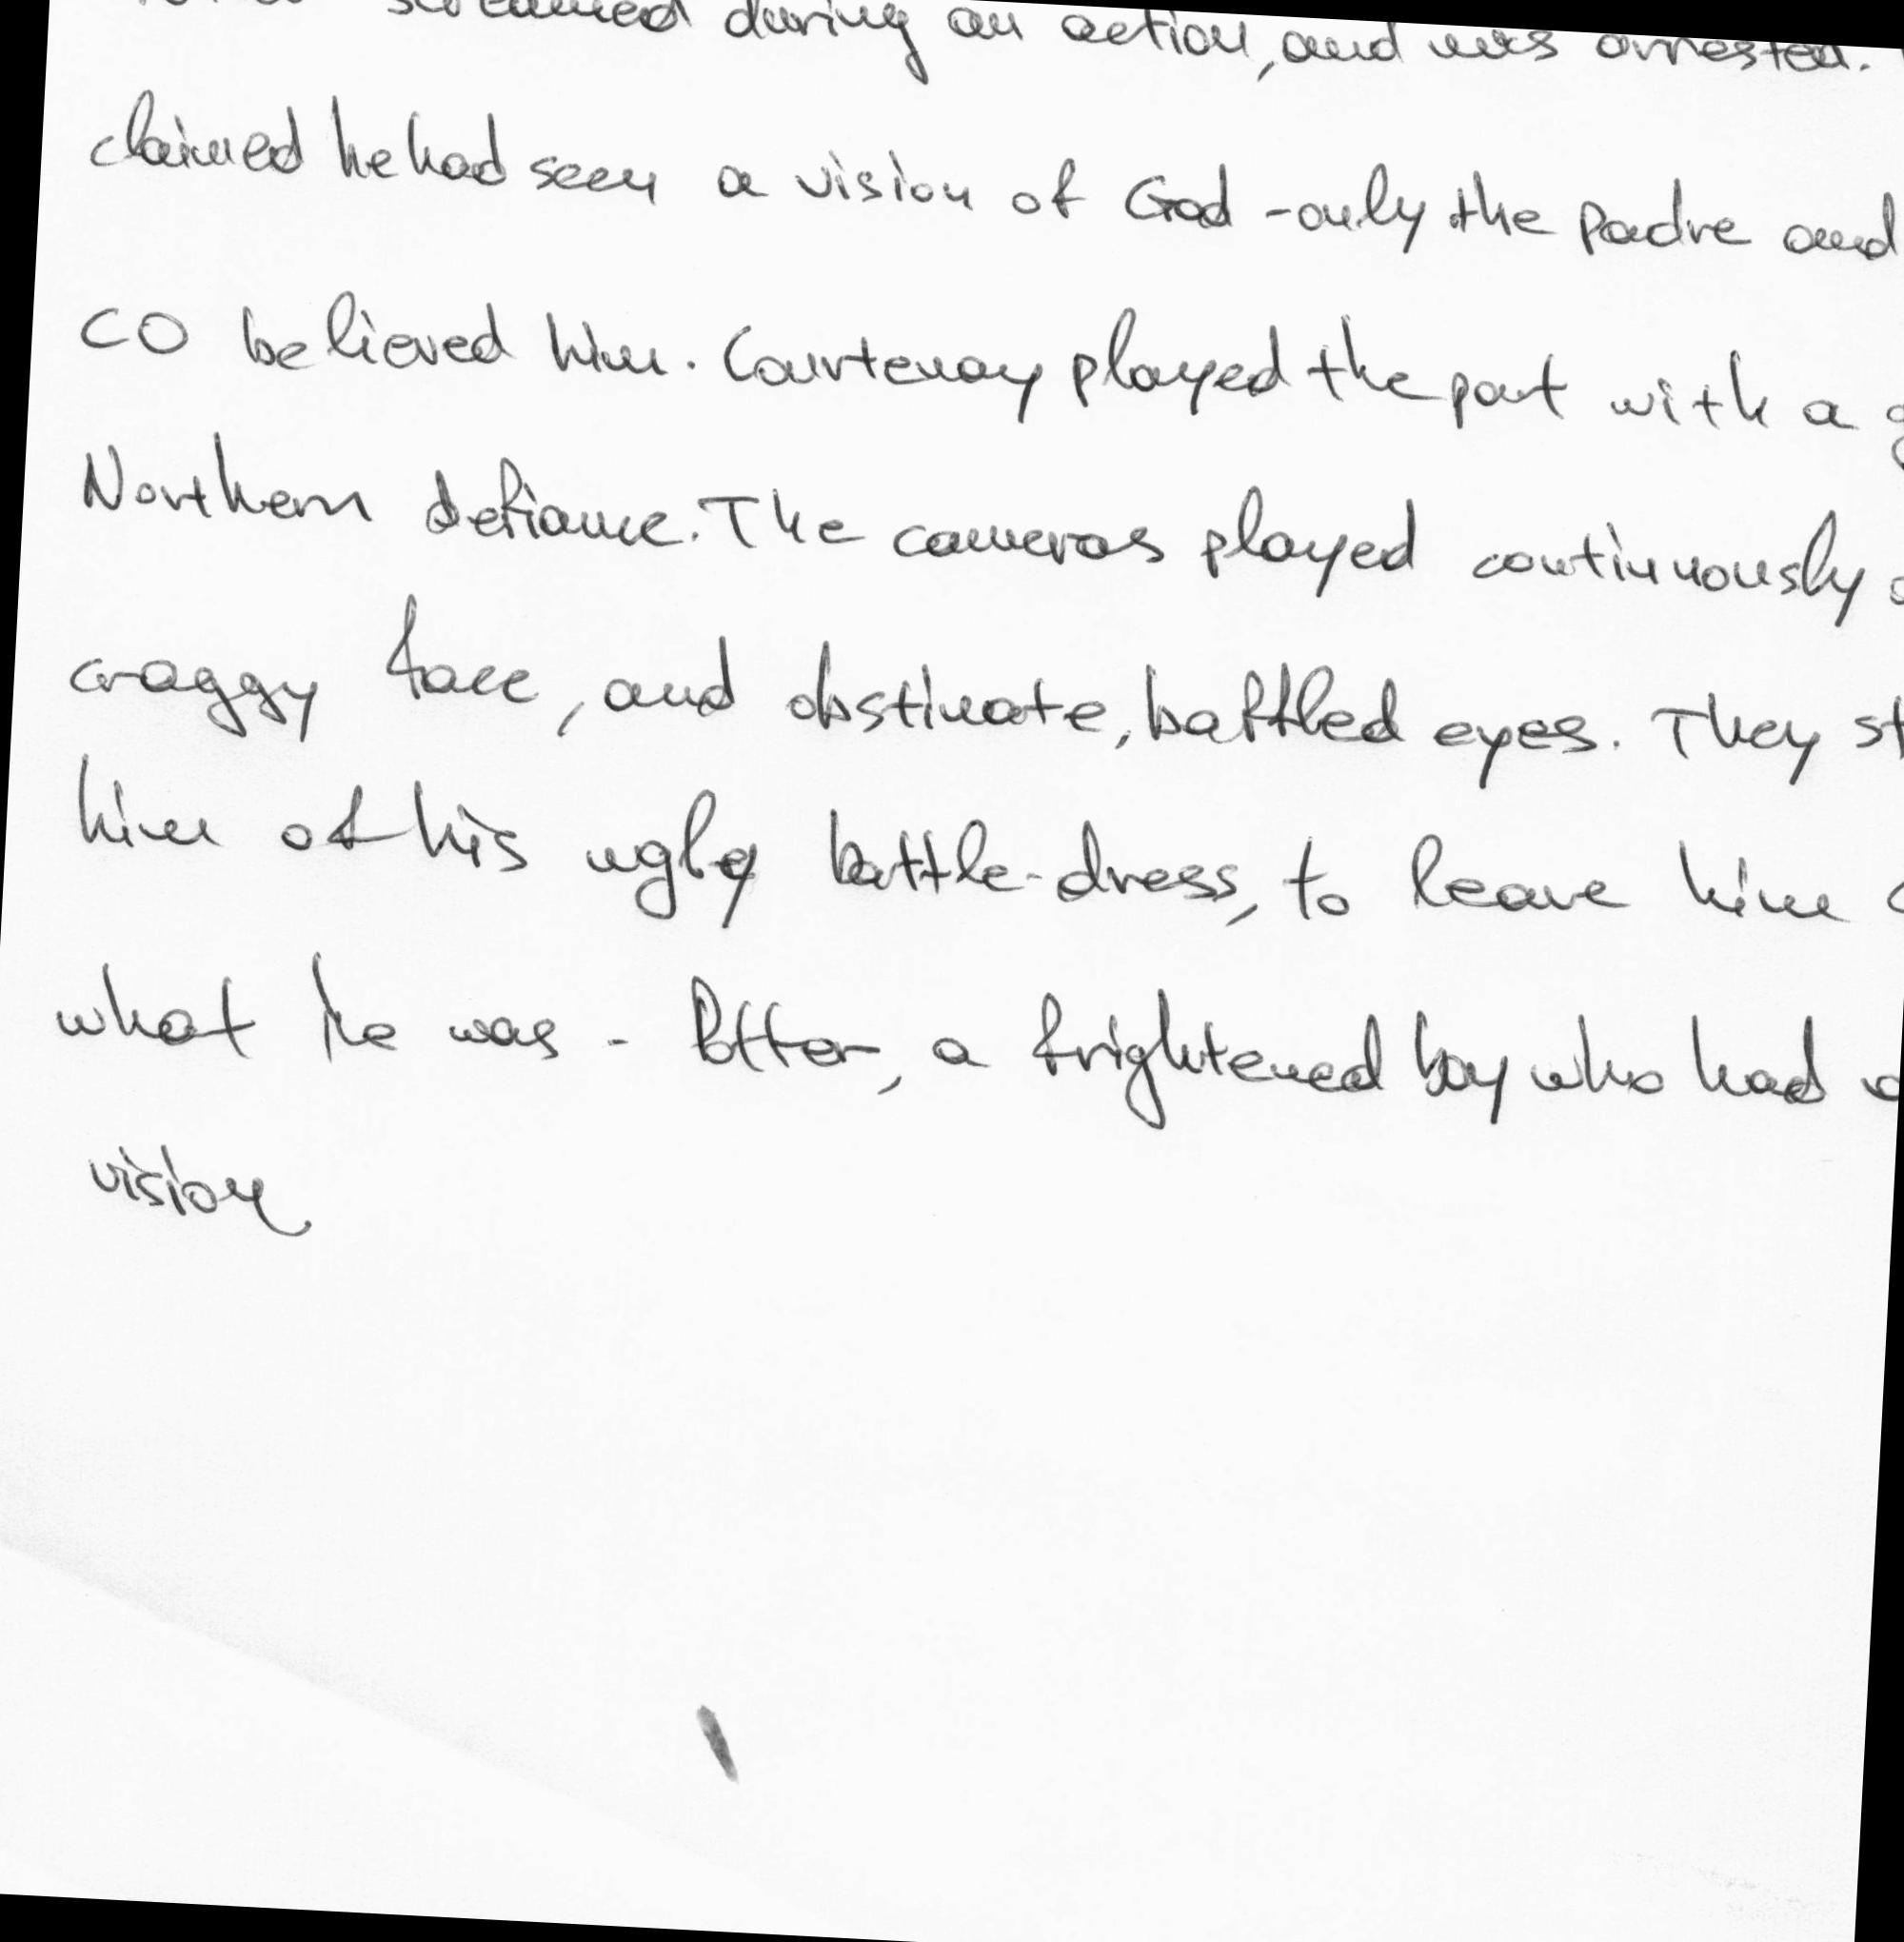 screamed during an action, and was arrested.
claimed he had seen a vision of God - only the padre and
CO believed him. Courtenay played the part with a
Northern defiance. The cameras played continuously
craggy face, and obstinate, baffled eyes. They
him of his ugly battle-dress, to leave him
what he was - Potter, a frightened boy who had
vision